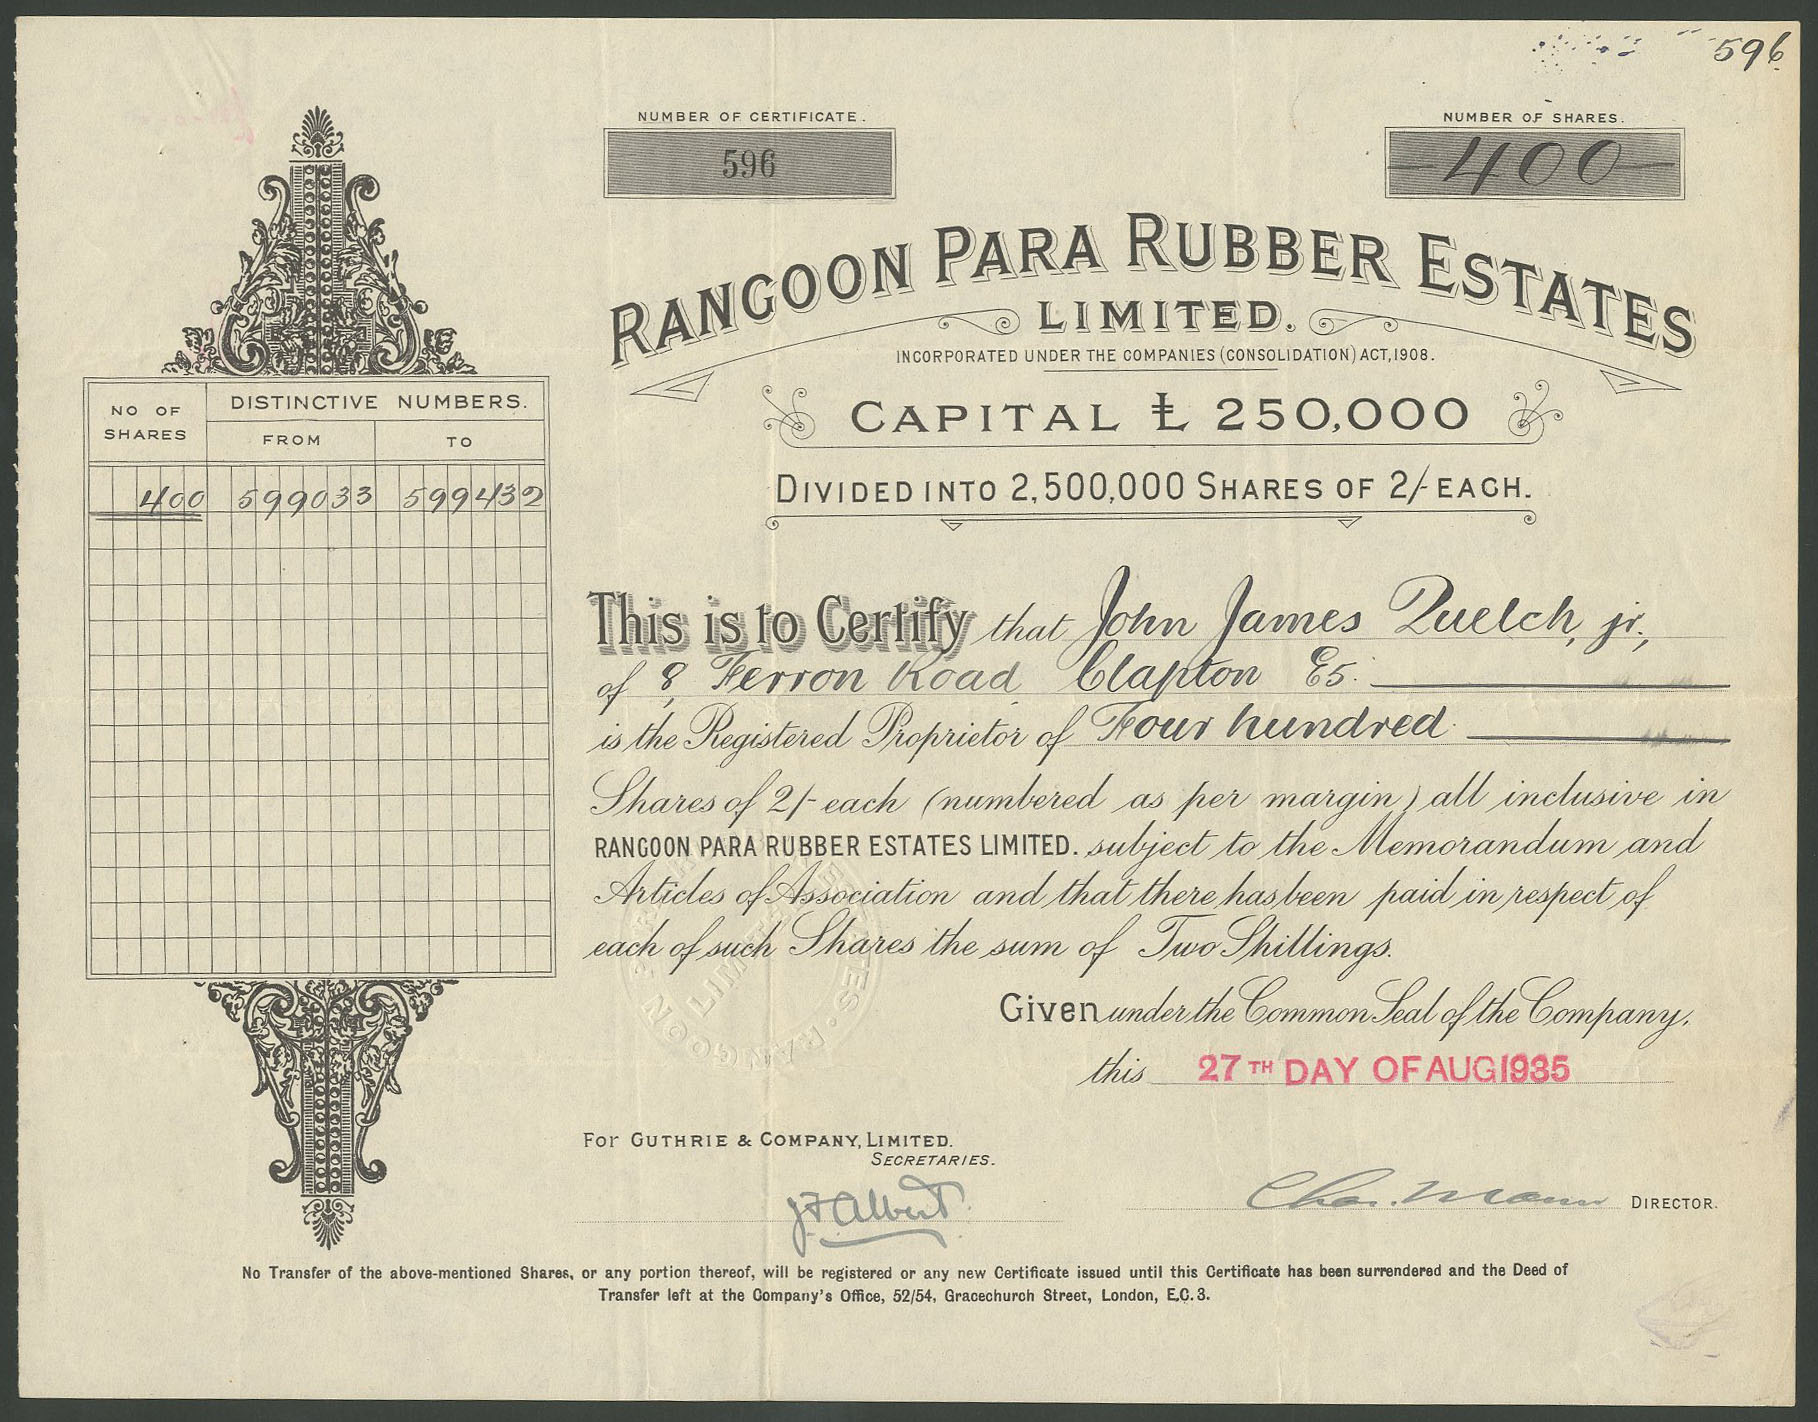 596
NUMBER OF CERTIFICATE.
596
NUMBER OF SHARES.
400
RANGOON PARA RUBBER ESTATES
LIMITED.
INCORPORATED UNDER THE COMPANIES (CONSOLIDATION) ACT, 1908.
CAPITAL £ 250,000
DIVIDED INTO 2,500,000 SHARES OF 2/- EACH.
NO OF SHARES
DISTINCTIVE NUMBERS.
FROM
TO
400 599033 599432
This is to Certify that John James Quelch, jr.,
of 8, Ferron Road, Clapton E5.
is the Registered Proprietor of Four hundred
Shares of 2/- each (numbered as per margin) all inclusive in
RANGOON PARA RUBBER ESTATES LIMITED. subject to the Memorandum and
Articles of Association and that there has been paid in respect of
each of such Shares the sum of Two Shillings.
Given under the Common Seal of the Company,
this 27TH DAY OF AUG 1935
For GUTHRIE & COMPANY, LIMITED.
SECRETARIES.
J F Albert
Chas. Mann DIRECTOR.
No Transfer of the above-mentioned Shares, or any portion thereof, will be registered or any new Certificate issued until this Certificate has been surrendered and the Deed of
Transfer left at the Company's Office, 52/54, Gracechurch Street, London, E.C.3.